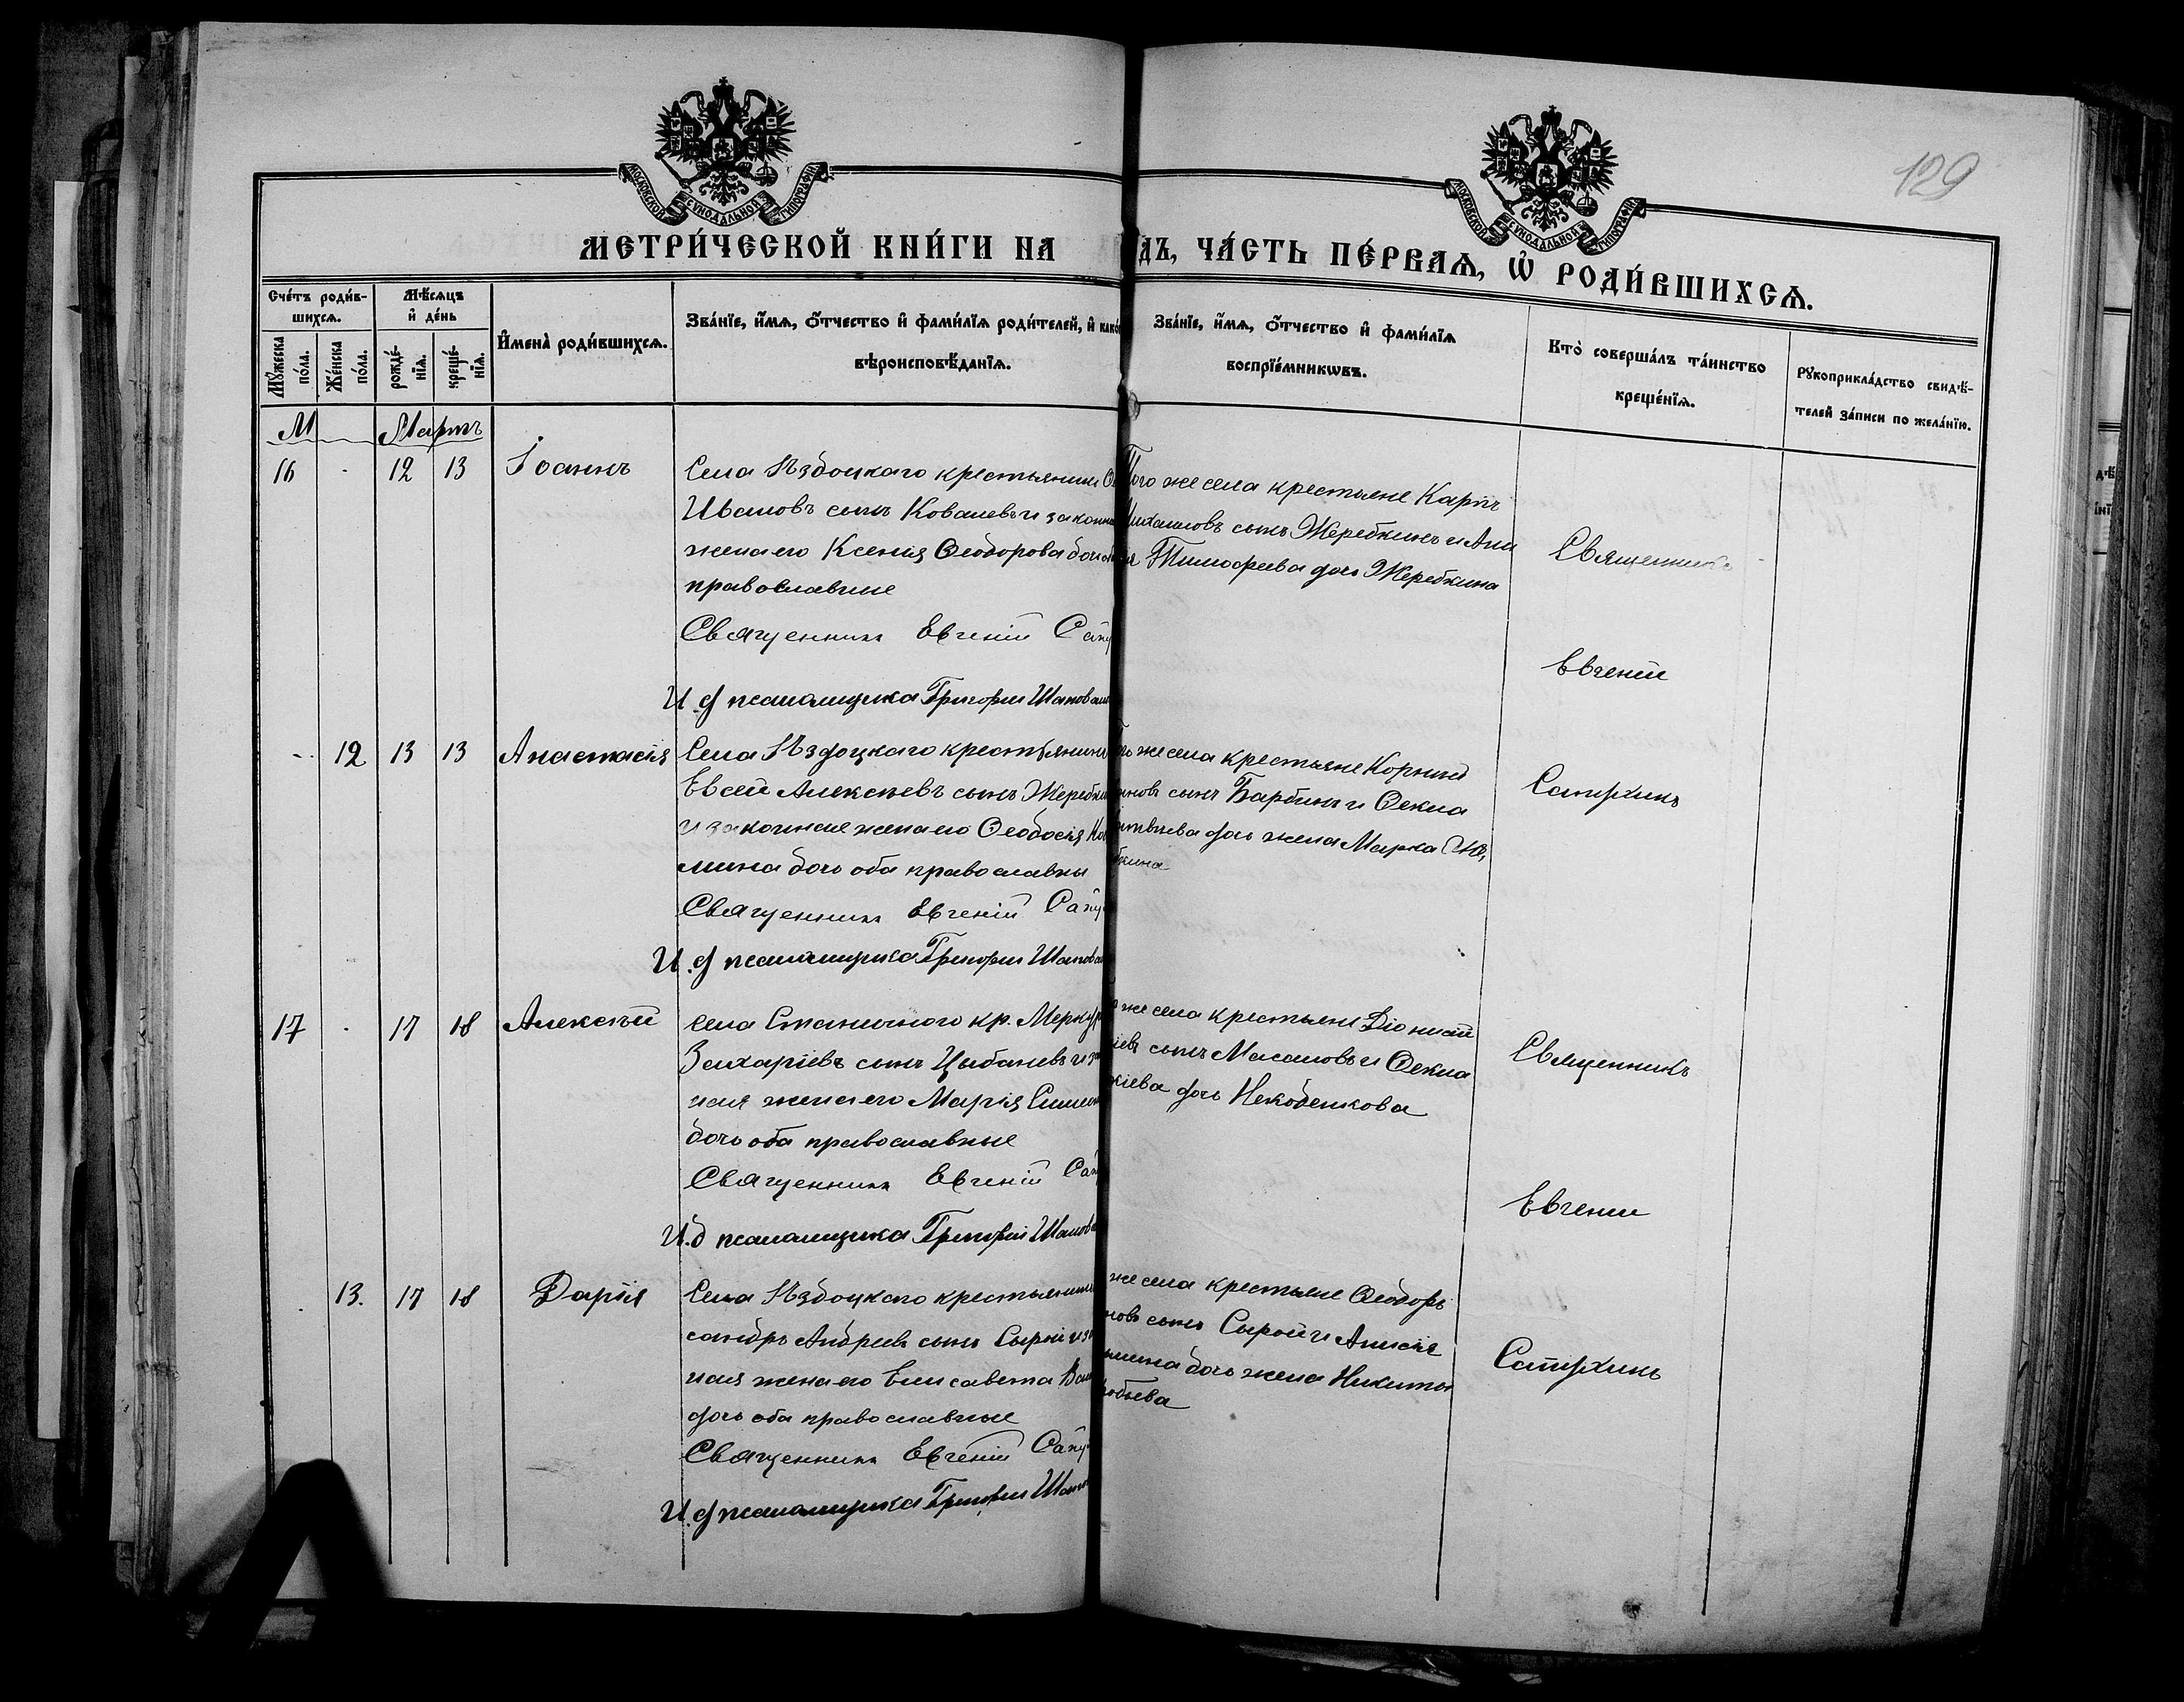 129
МОСКОВСКОЙ СѴНОДАЛЬНОЙ ТИПОГРАФІИ
МОСКОВСКОЙ СѴНОДАЛЬНОЙ ТИПОГРАФІИ
МЕТРИ́ЧЕСКОЙ КНИ́ГИ НА
ДЪ, ЧА́СТЬ ПЕ́РВАѦ, Ѡ҆ РОДИ́ВШИХСѦ.
Сче́тъ роди́в-
шихсѧ.
Мꙋ́жеска по́ла.
Же́нска по́ла.
Мѣ́сѧцъ
и҆ де́нь
рожде́-
нїѧ.
креще́-
нїѧ.
И҆мена̀ роди́вшихсѧ.
Зва́нїе, и҆́мѧ, ѻ҆́тчество и҆ фами́лїѧ роди́телей, и҆ како́
вѣроисповѣ́данїѧ.
Зва́нїе, и҆́мѧ, ѻ҆́тчество и҆ фами́лїѧ
воспрїе́мникѡвъ.
Кто̀ соверша́лъ та́инство
креще́нїѧ.
Рꙋкоприкла́дство свидѣ́-
телей за́писи по жела́нїю.
М Мартъ
16 - 12 13 Іоаннъ
Села крестьянинъ
Ивановъ сынъ Ковалевъ и законн
жена его Ксенія Ѳеодорова дочь
православные
Священникъ Евгеній
И. д псаломщика Григорій Шаповал
Того же села крестьяне Карпъ
Михаиловъ сынъ Жеребкинъ и
Тимофеева дочь Жеребкина
Священникъ
Евгеній
- 12 13 13 Анастасія
Села крестьянинъ
Евсей Алексѣевъ сынъ Жеребки
и законная жена его Ѳеодосія
мина дочь оба православны
Священникъ Евгеній
И. д псаломщика Григорій Шапова
же села крестьяне Корнилій
новъ сынъ Барбинъ и Ѳекла
дочь жена Марка
бкина
Сапрхинъ
17 - 17 18 Алексѣй
Села кр. Меркур
Захаріевъ сынъ Цыбаневъ и за
ная жена его Марія Симеон
дочь оба православные
Священникъ Евгеній
И. д псаломщика Григорій Шапова
же села крестьяне Діонисій
іевъ сынъ Масаловъ и Ѳекла
кіева дочь
Священникъ
Евгеній
13. 17 18 Дарія
Села крестьянинъ
сандръ Андреевъ сынъ Сырой и за
ная жена его Елисавета
дочь оба православные
Священникъ Евгеній
И. д псаломщика Григорій
же села крестьяне Ѳеодоръ
новъ сынъ Сырой и Анисія
мина дочь жена Никиты
робьева